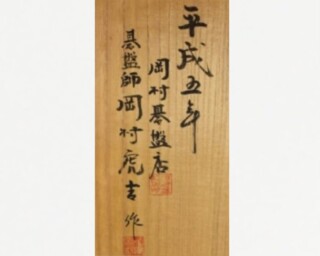 平成五年
岡村碁盤店
碁盤師岡村虎吉作